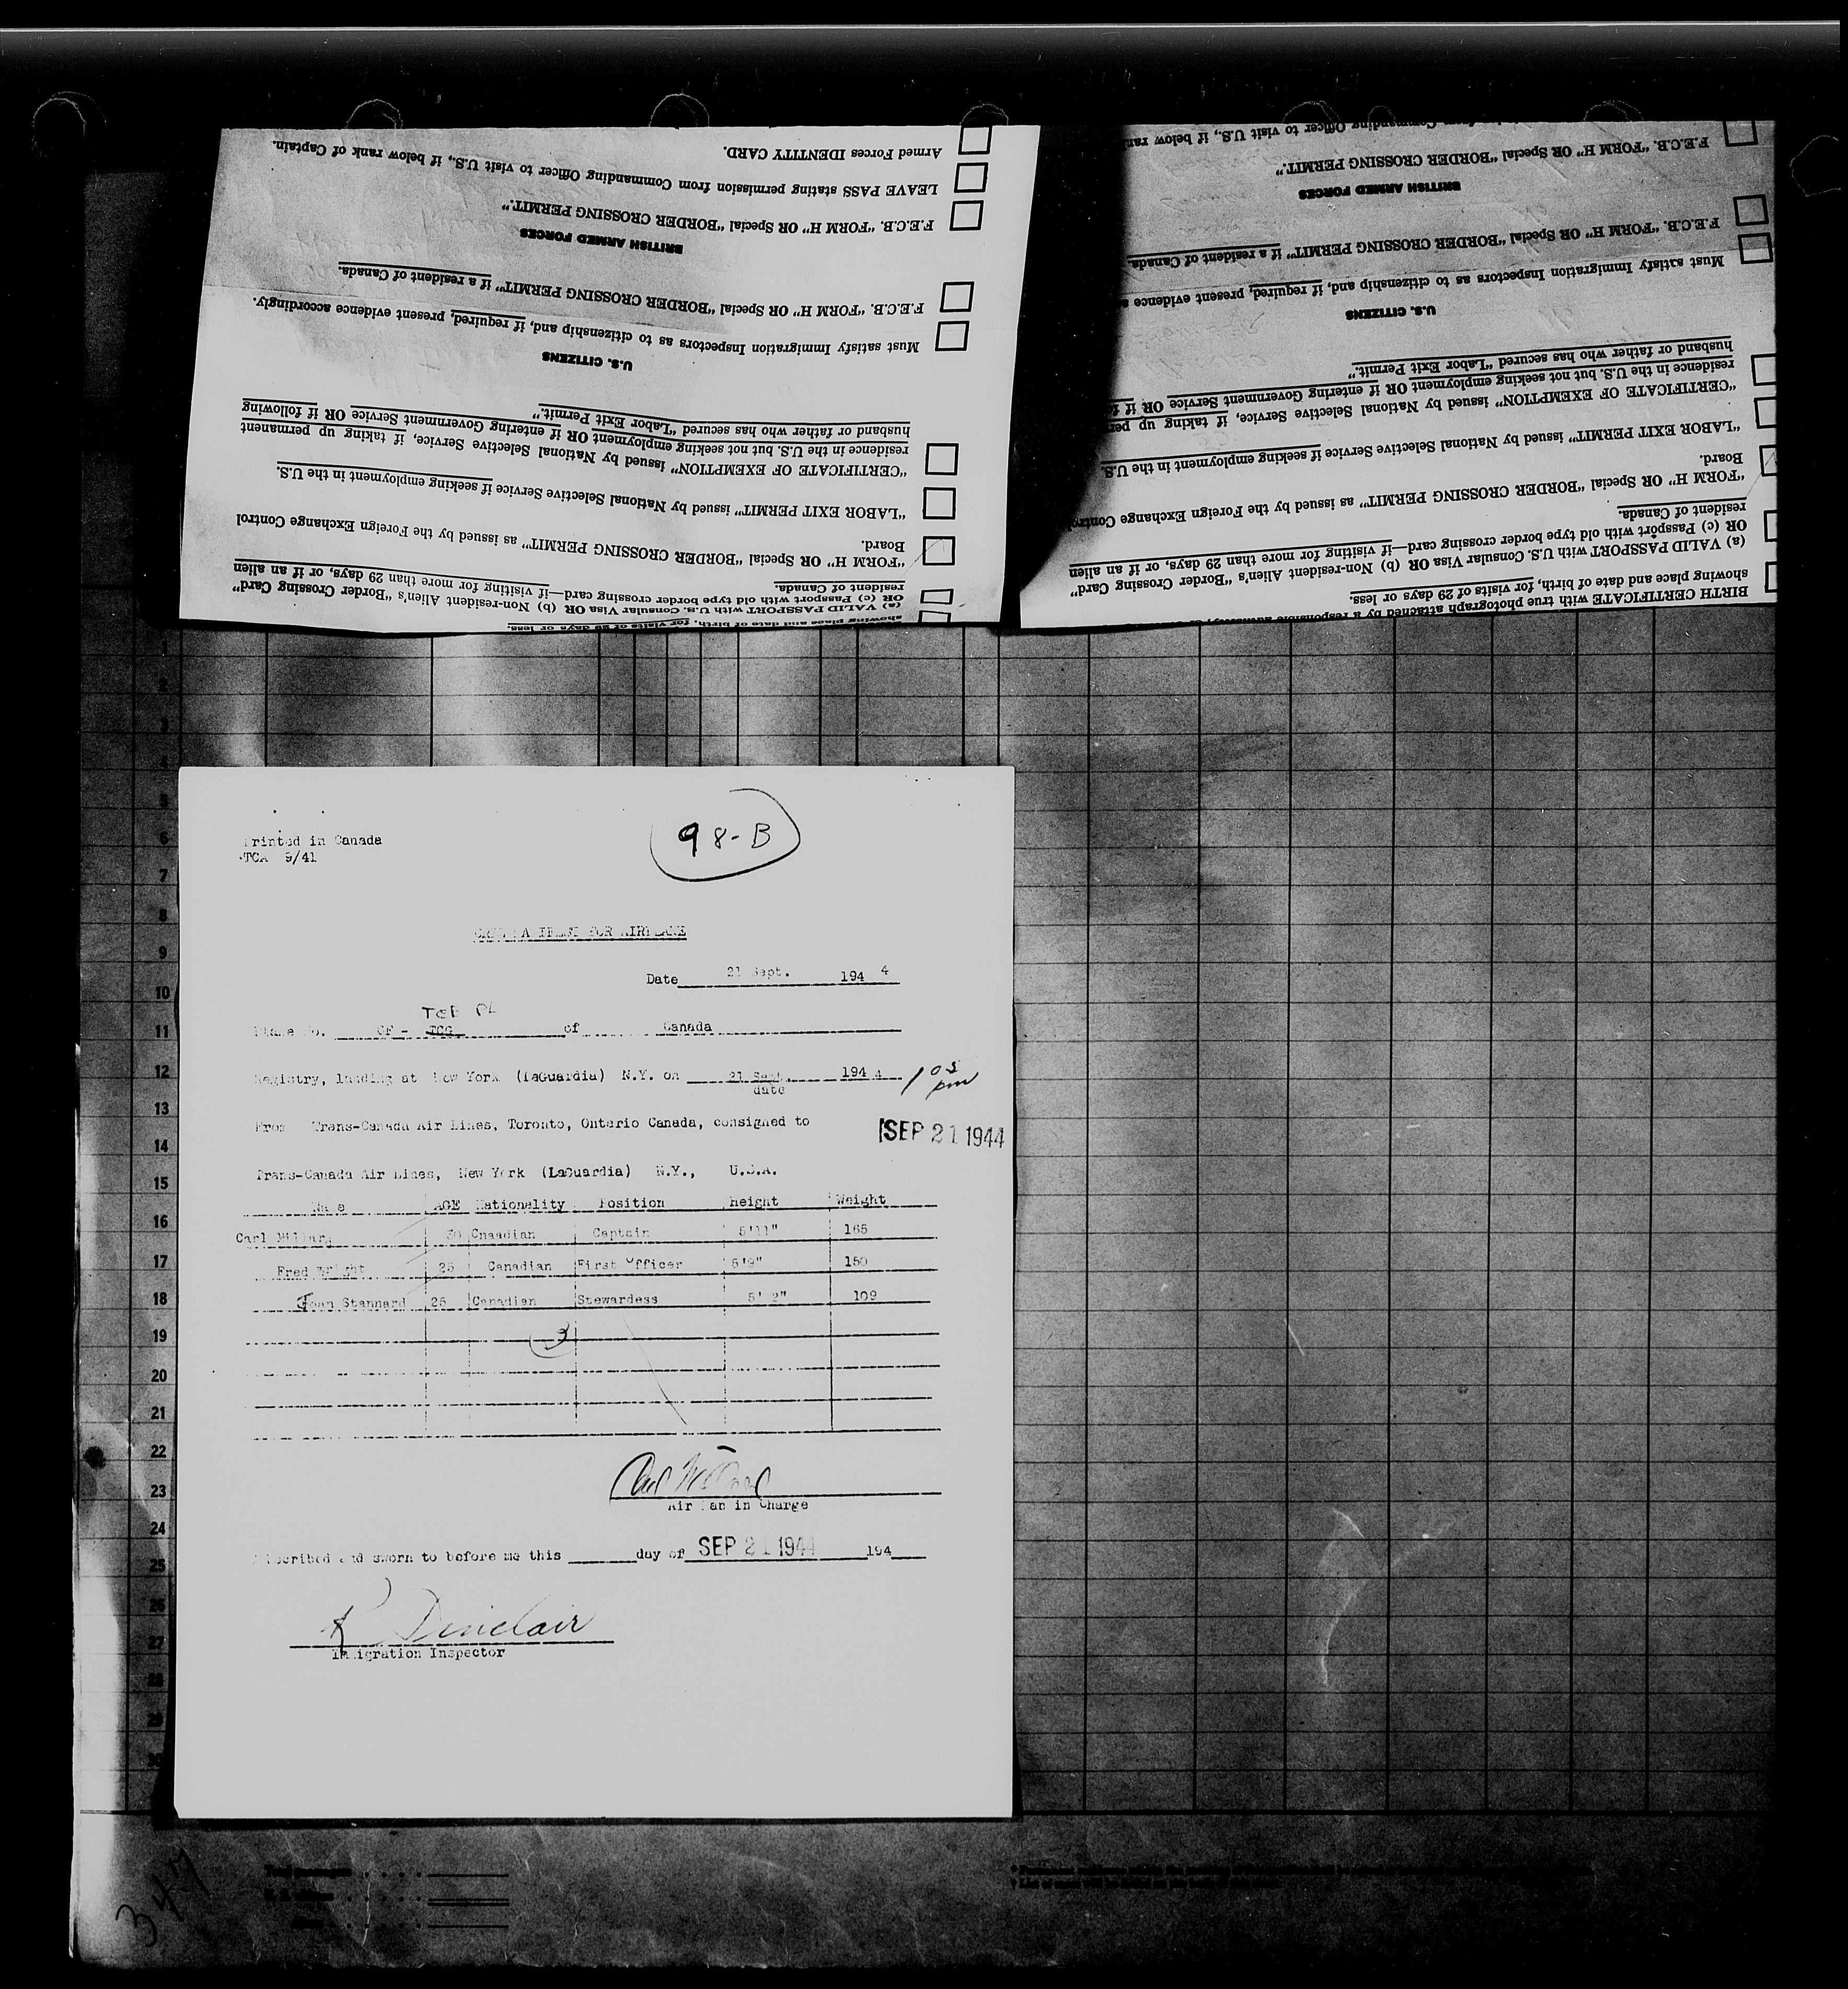 Armed Forces IDENTITY CARD.
LEAVE PASS stating permission from Commanding Officer to visit U.S., if below rank of Captain.
F.E.C.B. "FORM H" OR Special "BORDER CROSSING PERMIT."
BRITISH ARMED FORCES
F.E.C.B. "FORM H" OR Special "BORDER CROSSING PERMIT" if a resident of Canada.
Must satisfy Immigration Inspectors as to citizenship and, if required, present evidence accordingly.
U.S. CITIZENS
husband or father who has secured "Labor Exit Permit."
residence in the U.S. but not seeking employment OR if entering Government Service OR if following
"CERTIFICATE OF EXEMPTION" issued by National Selective Service, if taking up permanent
"LABOR EXIT PERMIT" issued by National Selective Service if seeking employment in the U.S.
Board.
"FORM H" OR Special "BORDER CROSSING PERMIT" as issued by the Foreign Exchange Control
resident of Canada.
OR (c) Passport with old type border crossing card—if visiting for more than 29 days, or if an alien
(a) VALID PASSPORT with U.S. Consular Visa OR (b) Non-resident Alien's "Border Crossing Card"
showing place and date of birth, for visits of 29 days or less.
Commanding Officer to visit U.S., if below
F.E.C.B. "FORM H" OR Special "BORDER CROSSING PERMIT."
BRITISH ARMED FORCES
F.E.C.B. "FORM H" OR Special "BORDER CROSSING PERMIT" if a resident of Canada.
Must satisfy Immigration Inspectors as to citizenship and, if required, present evidence
U.S. CITIZENS
husband or father who has secured "Labor Exit Permit."
residence in the U.S. but not seeking employment OR if entering Government Service OR if
"CERTIFICATE OF EXEMPTION" issued by National Selective Service, if taking up
"LABOR EXIT PERMIT" issued by National Selective Service if seeking employment in the U.S.
Board.
"FORM H" OR Special "BORDER CROSSING PERMIT" as issued by the Foreign Exchange Control
resident of Canada.
OR (c) Passport with old type border crossing card—if visiting for more than 29 days, or if an alien
(a) VALID PASSPORT with U.S. Consular Visa OR (b) Non-resident Alien's "Border Crossing Card"
showing place and date of birth, for visits of 29 days or less.
BIRTH CERTIFICATE with true photograph attached by a responsible
1
2
3
4
5
6
7
8
9
10
11
12
13
14
15
16
17
18
19
20
21
22
23
24
25
26
27
28
29
98-B
Printed in Canada
TCA 9/41
FOR AIRPLANE
Date 21 Sept. 194 4
Plane No. CF - TCG of Canada
Registry, landing at New York (LaGuardia) N.Y. on 21 Sept. 194 4 1 05 pm
date
From Trans-Canada Air Lines, Toronto, Ontario Canada, consigned to
SEP 21 1944
Trans-Canada Air Lines, New York (LaGuardia) N.Y., U.S.A.
Name AGE Nationality Position Height Weight
Carl 30 Cnaadian Captain 5'11" 165
Fred Wright 25 Canadian First Officer 5'9" 150
Joan Stannard 25 Canadian Stewardess 5' 2" 109
3
Air Man in Charge
scribed and sworn to before me this day of SEP 21 1944 194
K Sinclair
Immigration Inspector
347